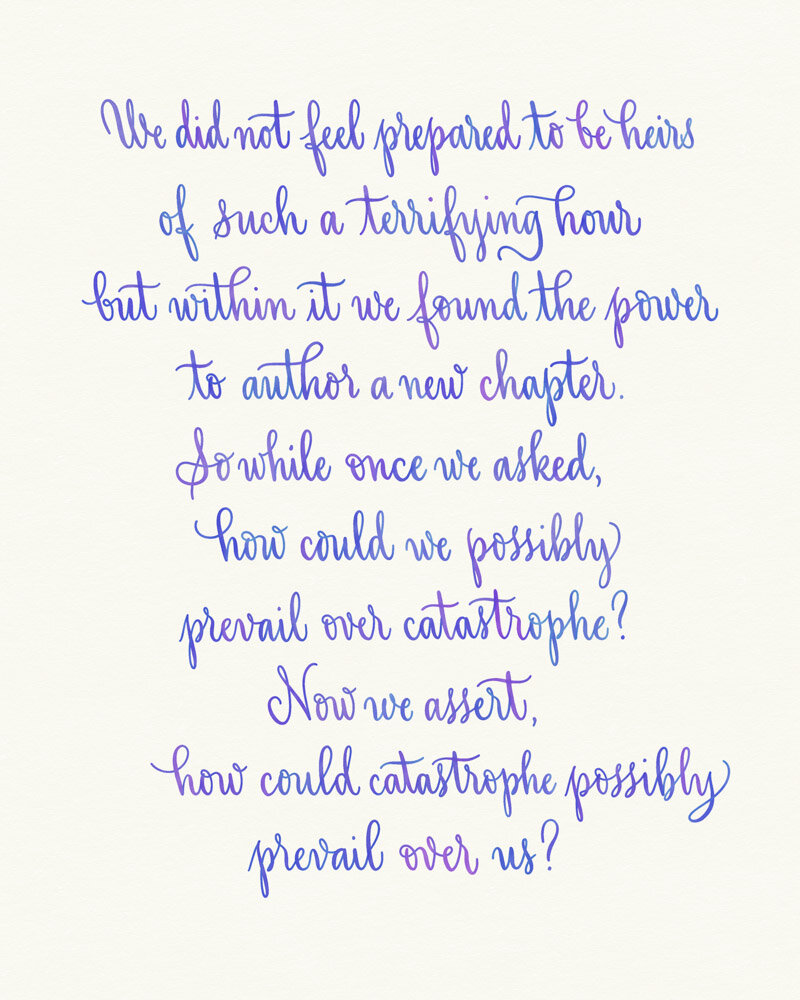 We did not feel prepared to be heirs
of such a terrifying hour
but within it we found the power
to author a new chapter.
So while once we asked,
how could we possibly
prevail over catastrophe?
Now we assert,
how could catastrophe possibly
prevail over us?